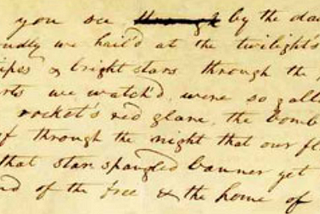 you see by the da
oudly we hail'd at the twilight's
ipes & bright stars through the
rts we watch'd, were so gall
rocket's red glare, the bomb
f through the night that our fl
that star spangled banner yet
nd of the free & the home of